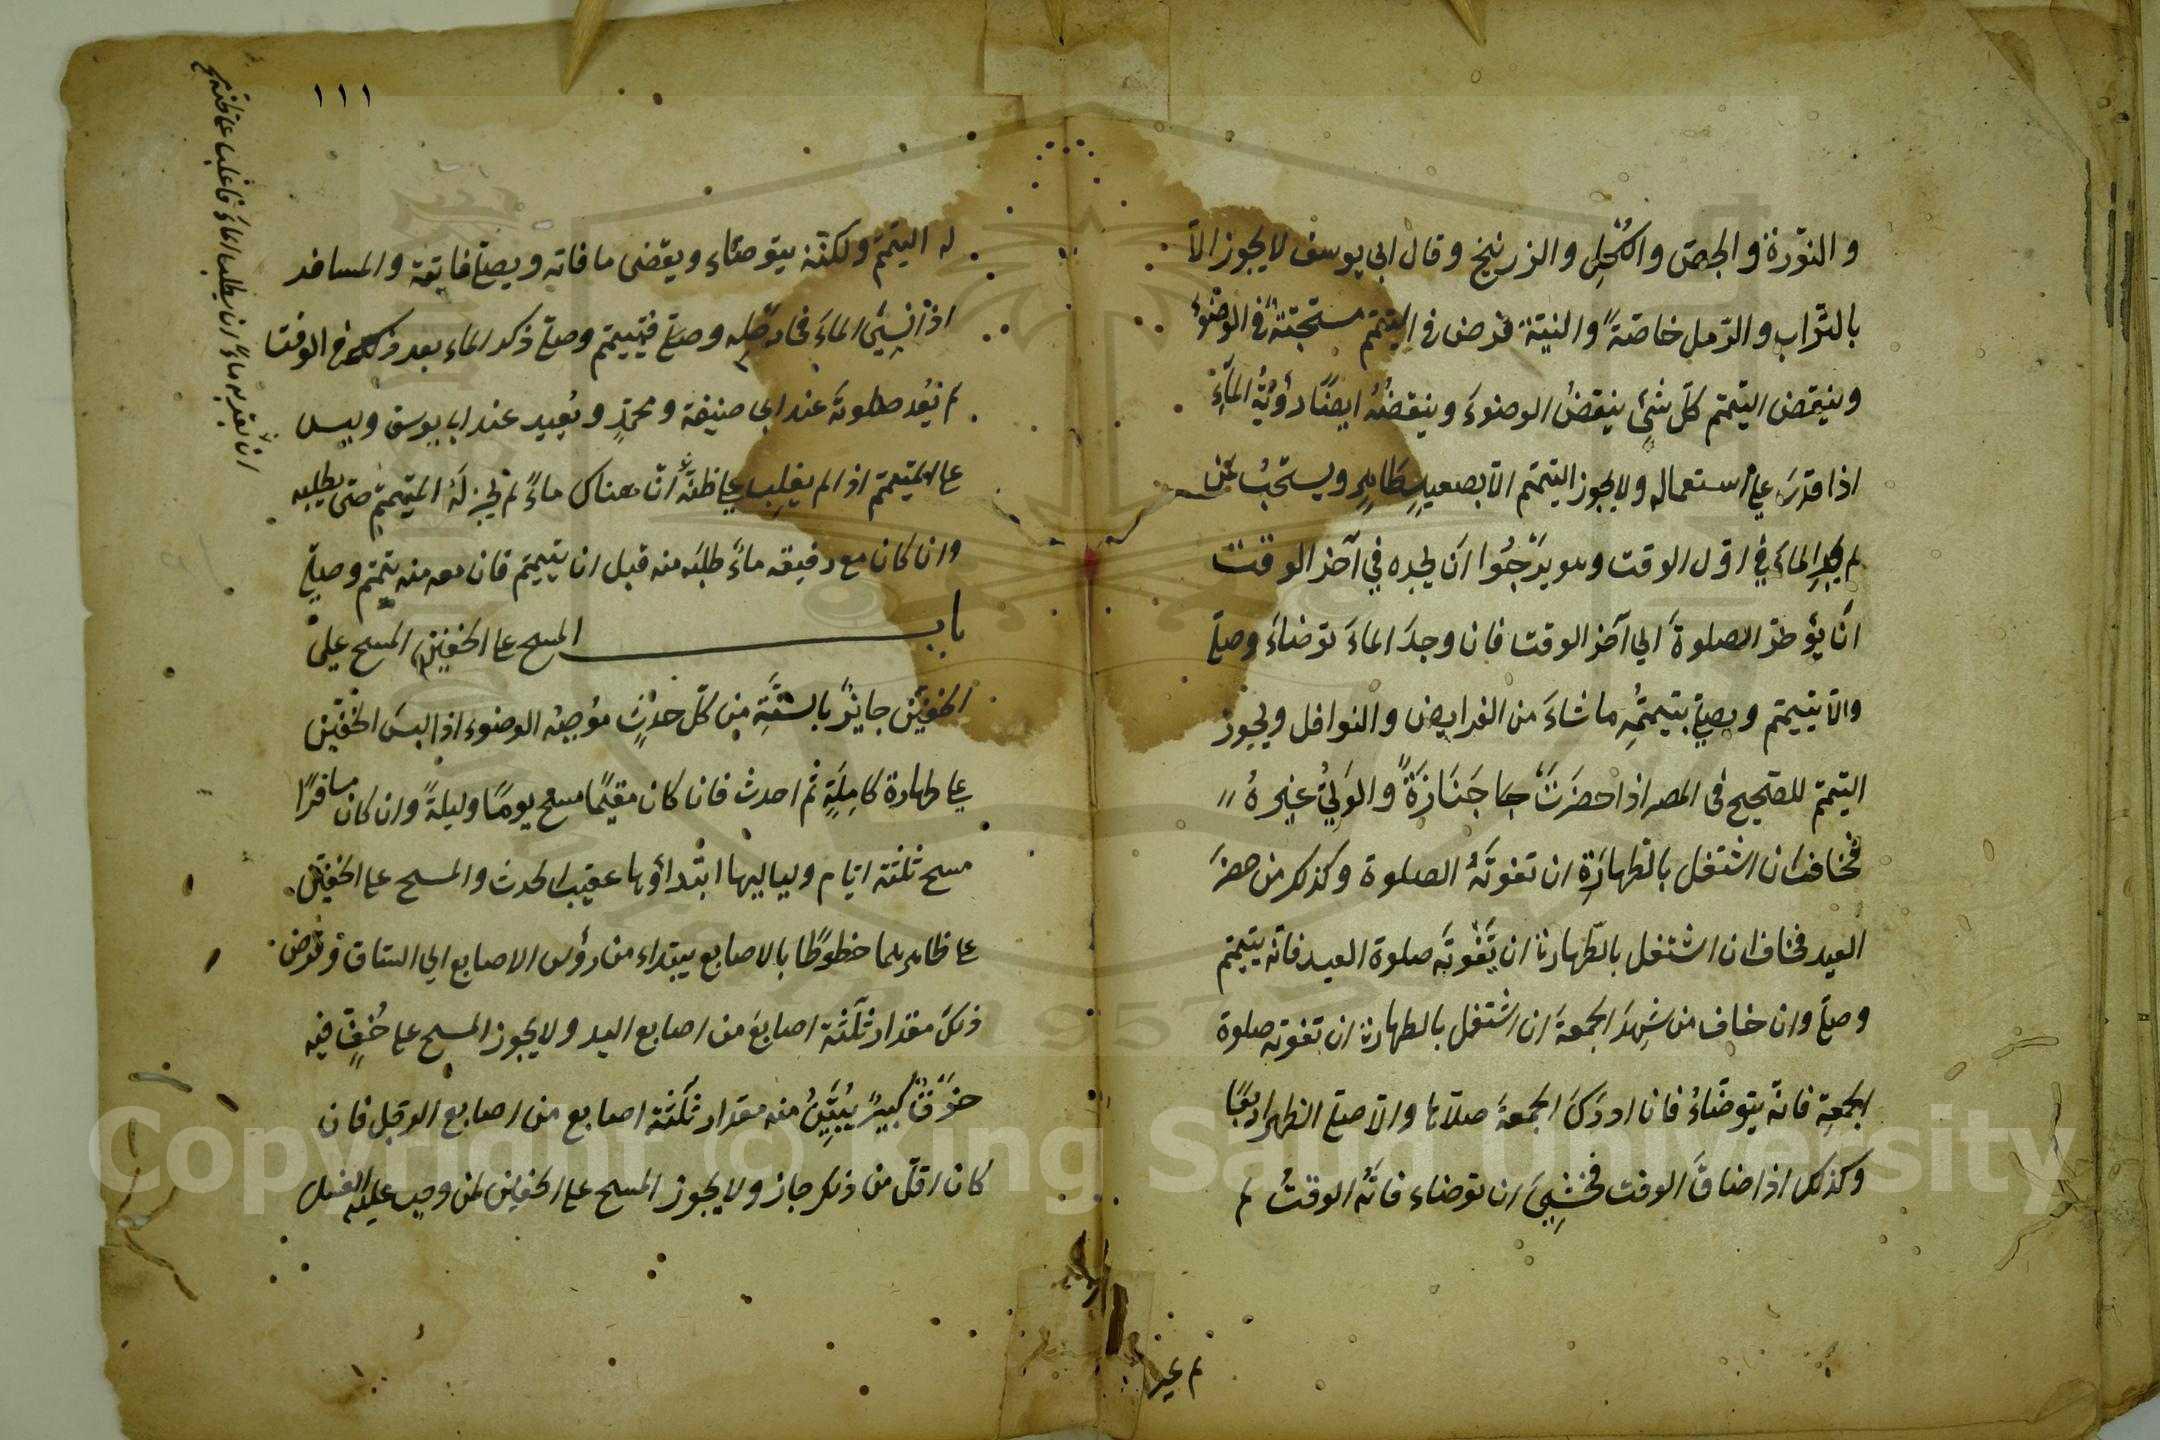 و النّورة و الجصّ و الكُحْلِ و الزرنيخ و قال ابي يوسف لا يجوز الاّ
بالتّراب و الرّمل خاصّةً و النيّة فرض في التيمّم مستحبّة في الوضوء
و ينقض التيمّم كلّ شيْءٍ ينقضُ الوضوءَ و ينقضُهُ ايضًا رؤيةُ الماءِ
اذا قدرَ على استعماله ولا يجوز التيمّم الاّ بصعيدٍ طاهرٍ ويستحبُ لمن
لم يجدِ الماءَ في اوّل الوقت وهو يَرْجُوا انْ يجده في آخر الوقت
انْ يؤخّر الصلوةَ الي آخر الوقت فان وجدَ الماءَ توضاءَ وصلّى
والاّ يتيمّم ويصلّي بتيمّمِه ما شاءَ من الفرايض و النوافل ويجوز
التيمّم للصّحيح في المصر اذا حضرَتْ جنازةٌ والوَليُّ غيرهُ
فخاف ان اشتغل بالطّهارَةِ ان تفوتَهُ الصلوة وكذلك من حضرَ
العيد فخاف ان اشتغل بالطّهارة ان تَفُوتَه صلوة العيد فانّه يتيمّم
وصلّى وان خاف من شهِدَ الجمعةَ ان اشتغل بالطهارة ان تفوته صلوة
الجمعة فانّه يتوضّاءُ فان ادركَ الجمعةَ صلاّها والاّ صلّى الظهر اربعًا
وكذلك اذا ضاقَ الوقت فخشِيَ ان توضاء فاتَهُ الوقتُ لم
لم يجز
١١١
له التيمّم ولكنّه يتوضّاء ويقضى ما فاته ويصلّي فايتة والمسافر
اذا نسِيَ الماءَ في رَحْلِه وصلّى فتيمّم وصلّى ذكر الماء بعد ذلك في الوقت
لم يُعِد صلوتَه عند ابي حنيفة ومحمّدٍ ويُعيد عند ابي يوسف وليس
على المتيمّم اذا لم يغلِب على ظنّه أنّ هناك ماءً لم يجز لَهُ التيمّم حتى يطلبه
وان كان مع رفيقه ماءً طلبَه منه قبل ان يتيمّم فان منعه منه تيمّم وصلّى
باب المسح على الخفّين المسح على
الخفّيْن جايزٌ بالسّنّةِ من كلّ حدثٍ موُجِبه الوضوء اذا لبسَ الخفّيْن
على طهارة كاملةٍ ثم احدث فان كان مقيمًا مسح يومًا وليلةً وان كان مسافرًا
مسح ثلثة ايّام ولياليها ابتداؤها عقيب الحدث والمسح على الخفّين
على ظاهرهما خطوطًا بالاصابع يبتداء من رؤس الاصابع الي السّاق وفرض
ذلكَ مقدار ثلثة اصابعَ من اصابع اليد ولا يجوز المسح على خُفٍّ فيه
خَرْقٌ كبيرٌ يُبَيِّنُ منه مقدار ثلثة اصابع من اصابع الرجل فان
كان اقلّ من ذلك جاز ولا يجوز المسح على الخفّين لمن وجب عليه الغسل